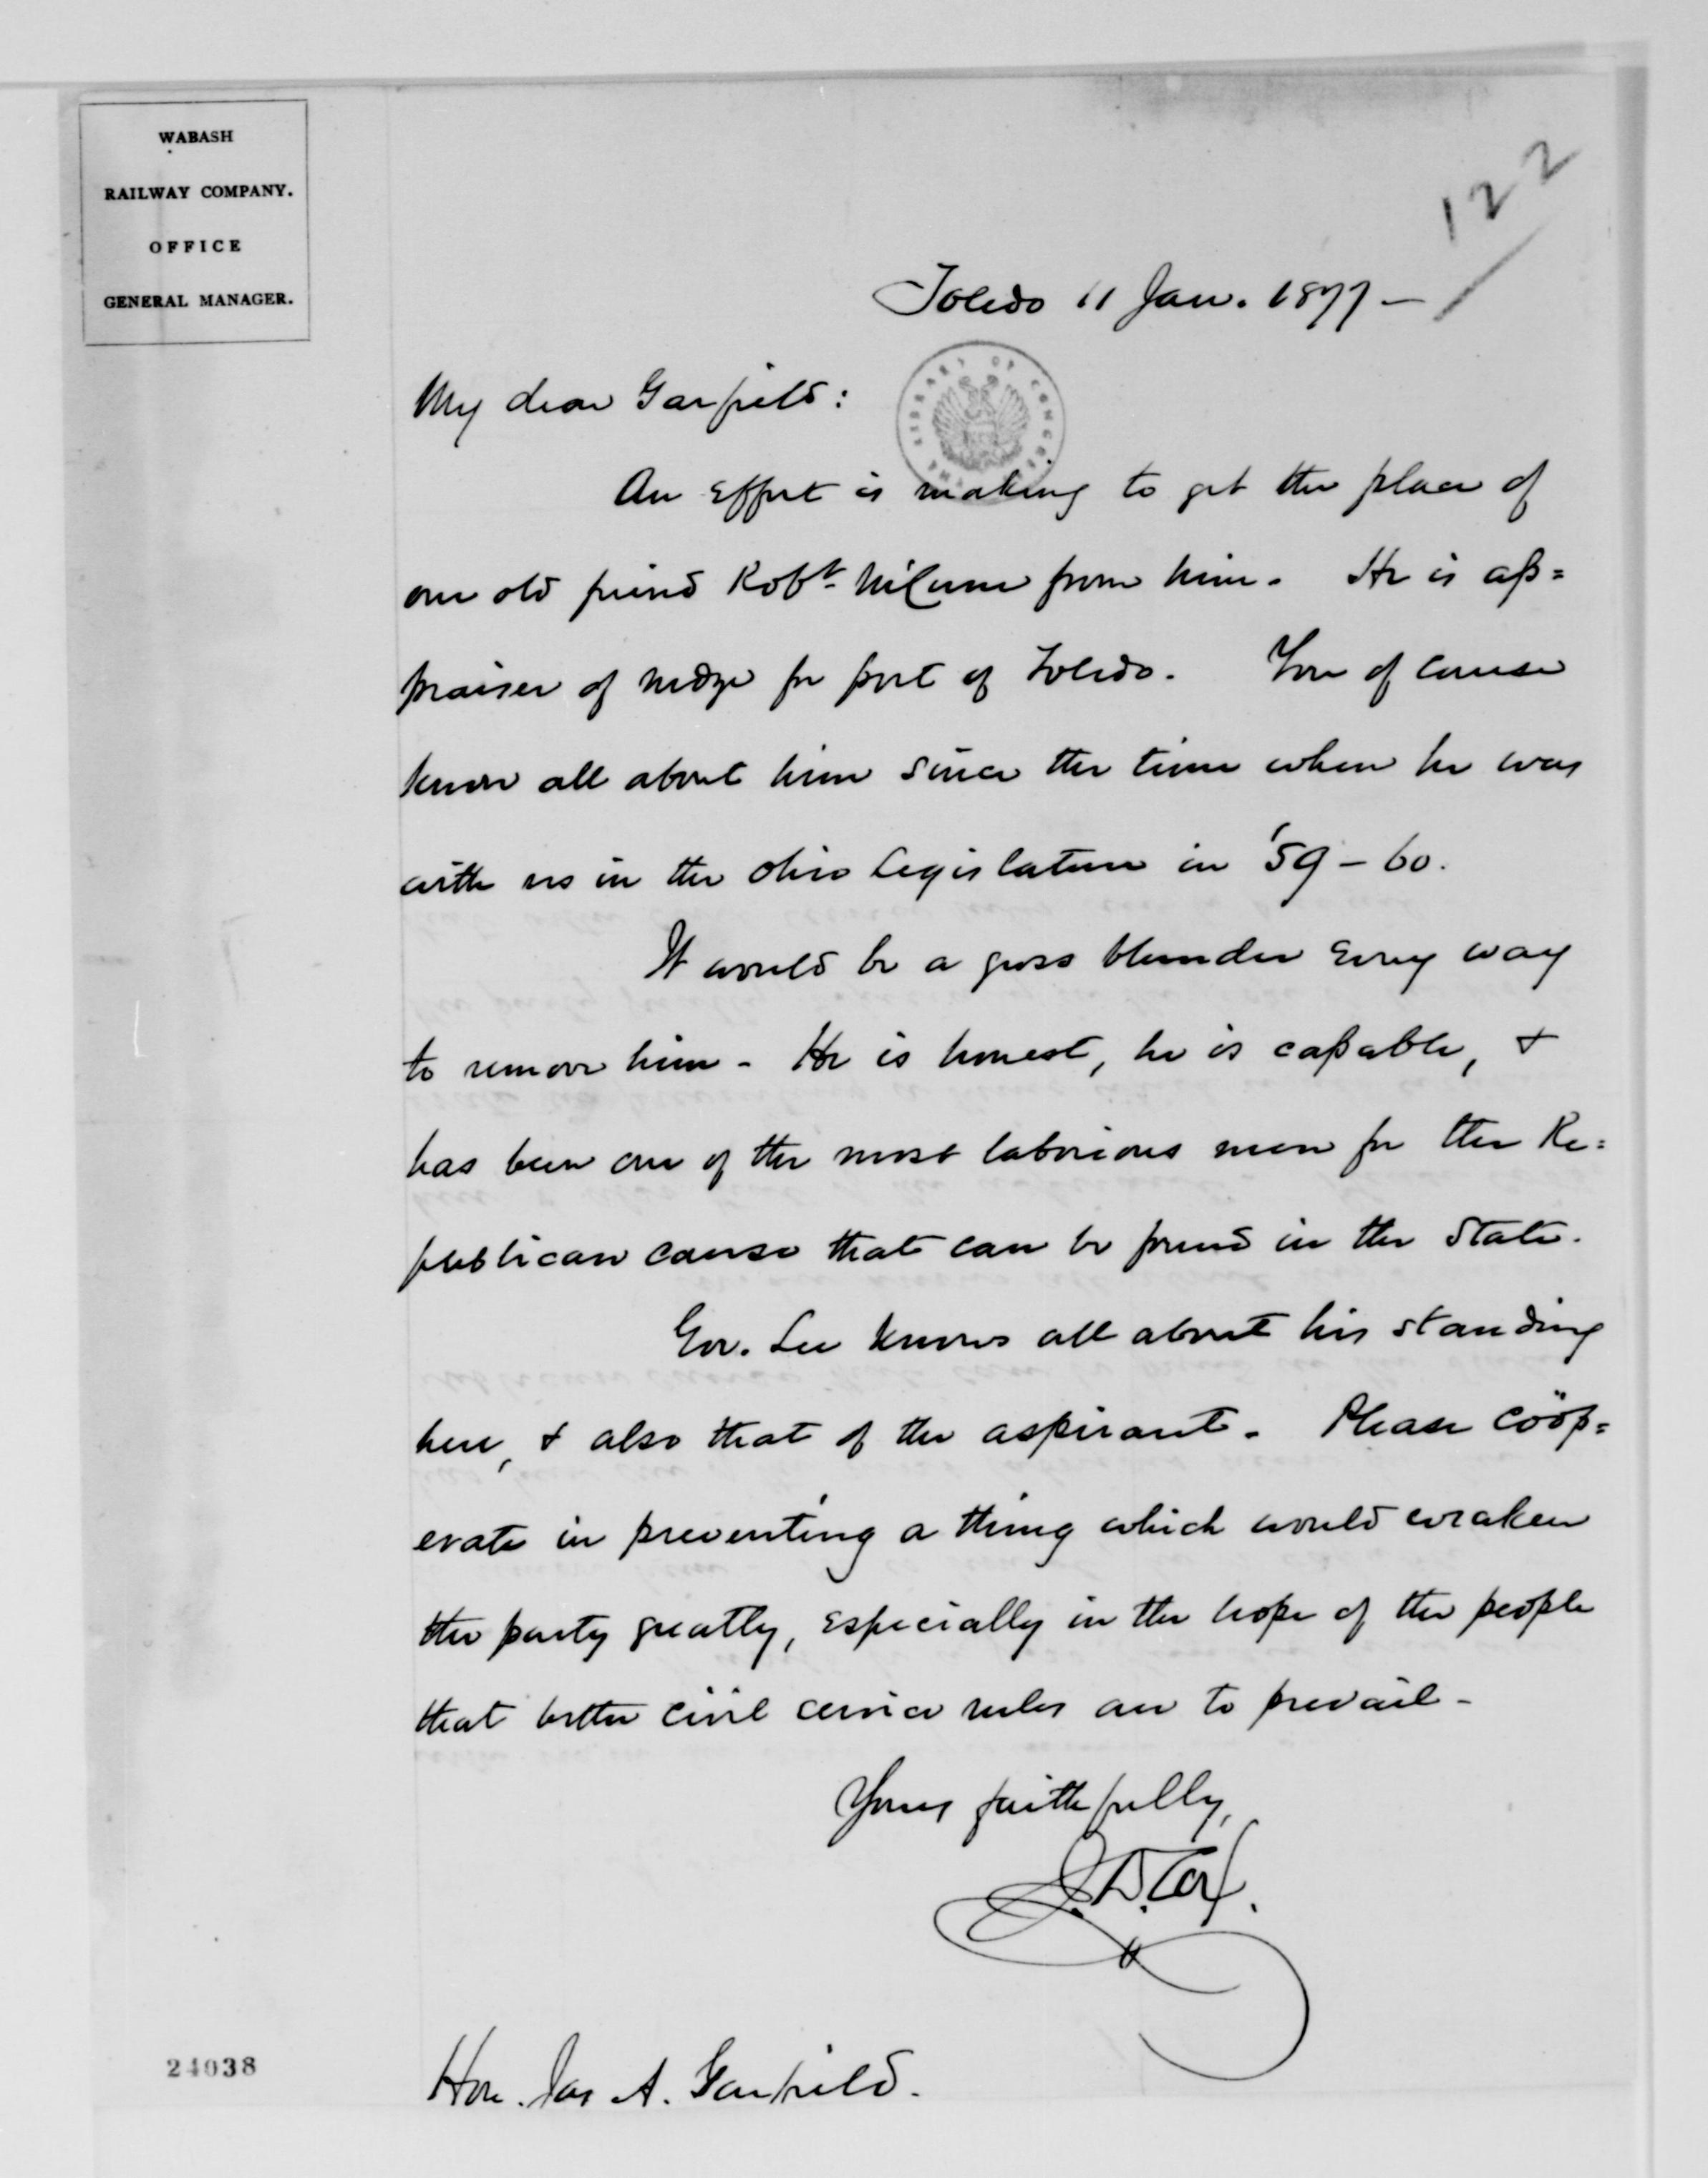 WABASH
RAILWAY COMPANY.
OFFICE
GENERAL MANAGER.
122
Toledo 11 Jan. 1877 –
My dear Garfield:
THE LIBRARY OF CONGRESS
An effort is making to get the place of
our old friend Robt. McCune from him. He is ap=
praiser of mdze for port of Toledo. You of course
know all about him since the time when he was
with us in the Ohio Legislature in '59 – 60.
It would be a gross blunder every way
to remove him – He is honest, he is capable, &
has been one of the most laborious men for the Re=
publican cause that can be found in the State.
Gov. Lee knows all about his standing
here, & also that of the aspirant. Please coöp=
erate in preventing a thing which would weaken
the party greatly, especially in the hope of the people
that better civil service rules are to prevail –
Yours faithfully,
J. D. Cox.
Hon. Jas A. Garfield.
24038